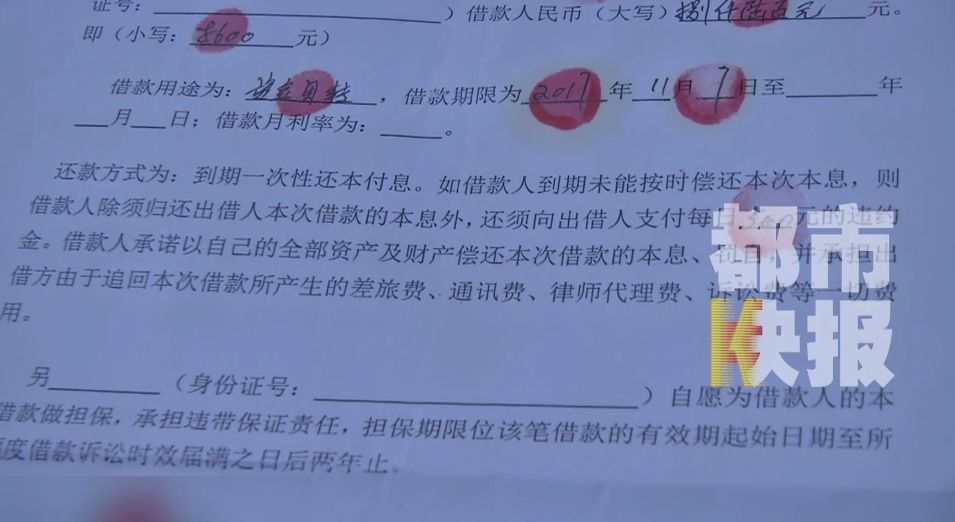 证号：________________）借款人民币（大写）捌仟陆百元____元。
即（小写：8600____元）
借款用途为：____，借款期限为2017年11月7日至____年
___月___日；借款月利率为：____。
还款方式为：到期一次性还本付息。如借款人到期未能按时偿还本次本息，则
借款人除须归还出借人本次借款的本息外，还须向出借人支付每日 元的违约
金。借款人承诺以自己的全部资产及财产偿还本次借款的本息、罚息，并承担出
借方由于追回本次借款所产生的差旅费、通讯费、律师代理费、诉讼费等一切费
用。
另________（身份证号：________________）自愿为借款人的本
借款做担保，承担违带保证责任，担保期限位该笔借款的有效期起始日期至所
度借款诉讼时效届满之日后两年止。
都市
快报